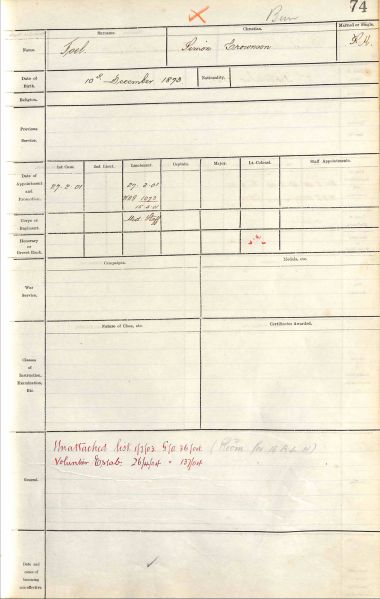 74
Surname. Christian. Married or Single.
Name. Joel. Simon Crownson
Date of Birth. 10th December 1873 Nationality.
Religion.
Previous Service.
1st Com. 2nd Lieut. Lieutenant. Captain. Major. Lt. Colonel. Staff Appointments.
Date of Appointment and Promotion. 27.2.01 27.2.01
15.3.01
Corps or Regiment. Med. Staff
Honorary or Brevet Rank.
Campaigns. Medals, etc.
War Service.
Nature of Class, etc. Certificates Awarded.
Classes of Instruction, Examination, Etc.
Unattached list 1/3/03 G/O 36/04
Volunter Estab. 26/4/04 " 137/04
General.
Date and cause of becoming non-effective.